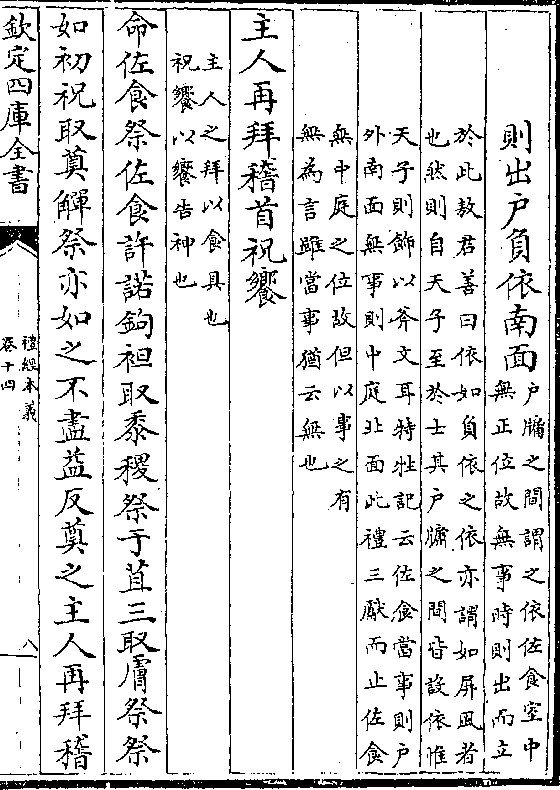 則出户負依南面
户牖之間謂之依佐食室中
無正位故無事時則出而立
於此敖君善曰依如負依之依亦謂如屏風者
也然則自天子至於士其户牖之間皆設依惟
天子則飾以斧文耳特牲記云佐食當事則户
外南面無事則中庭北面此禮三厭而止佐食
無中庭之位故但以事之有
無為言雖當事猶云無也
主人再拜稽首祝饗
主人之拜以食具也
祝饗以饗告神也
命佐食祭佐食許諾鉤袒取黍稷祭于苴三取膚祭祭
如初祝取奠觶祭亦如之不盡益反奠之主人再拜稽
欽定四庫全書
禮經本義
卷十四
八